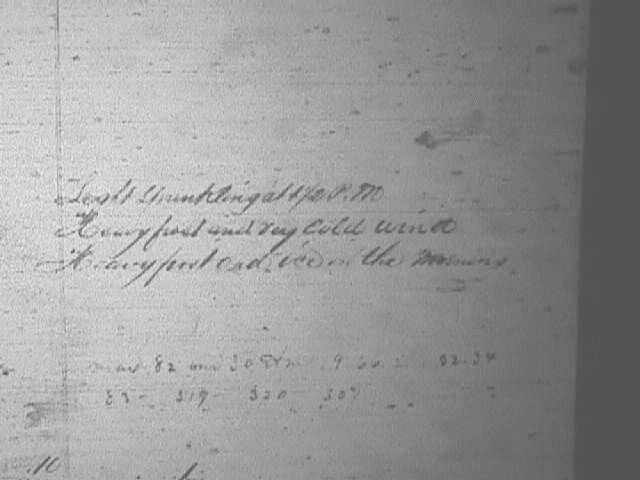 Light Sprinkling at P.M
Heavy frost and very Cold wind
Heavy frost and ice in the Morning
max 82 min 30 9 32.34
83 - 319 - 320 307
.10